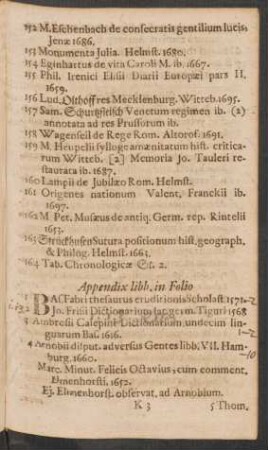 152 M. Eschenbach de consecratis gentilium lucis,
Jenæ 1686.
153 Monumenta Julia. Helmst. 1680.
154 Eginhartus de vita Caroli M. ib. 1667.
155 Phil. Irenici Elisii Diarii Europæi pars II,
1659.
156 Lud. Olthoff res Mecklenburg. Witteb. 1695.
157 Sam. Schurtzfleisch Venetum regimen ib. (2)
annotata ad res Prussorum ib.
158 Wagenseil de Rege Rom. Altorof. 1691.
159 M. Heupelii sylloge amænitatum hist. critica-
rum Witteb. [2] Memoria Jo. Tauleri re-
staurata ib. 1687.
160 Lampii de Jubilæo Rom. Helmst.
161 Origenes nationum Valent, Franckii ib.
1697.
162 M. Pet. Musæus de antiq. Germ. rep. Rintelii
1653.
163 Struckhusen Sutura positionum hist, geograph,
& Philog. Helmst. 1661.
164 Tab. Chronologicæ St. 2.
Appendix libb. in Folio
1 BAS Fabri thesaurus eruditionis Scholast. 1571.
Jo. Frisii Dictionarium lat. germ. Tiguri 1568
3 Ambrosii Calepini Dictionarium undecim lin-
guarum Bas. 1616.
4 Arnobii disput. adversus Gentes libb. VII. Ham-
burg. 1660.
Marc. Minut. Felicis Octavius, cum comment.
Elmenhorstii. 1652.
Ej. Elmenhorst. observat. ad Arnobium.
K 3 5 Thom.